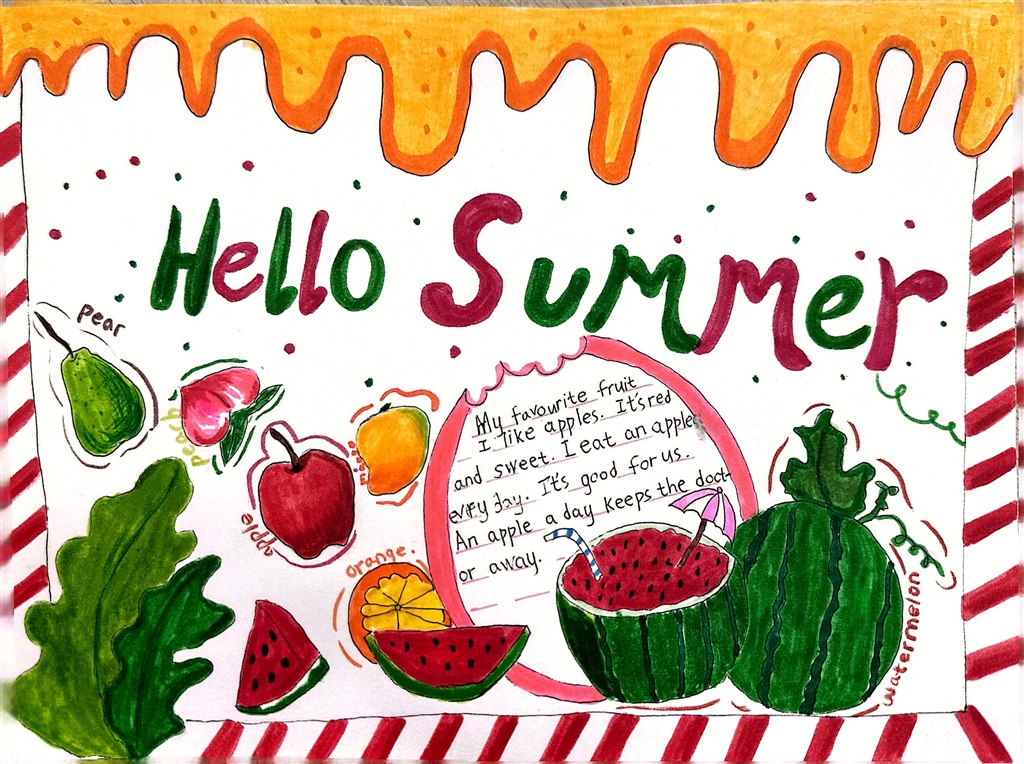 Hello Summer
pear
peach
apple
mango
orange.
My favourite fruit
I like apples. It's red
and sweet. I eat an apple
every day. It's good for us.
An apple a day keeps the doct-
or away.
watermelon